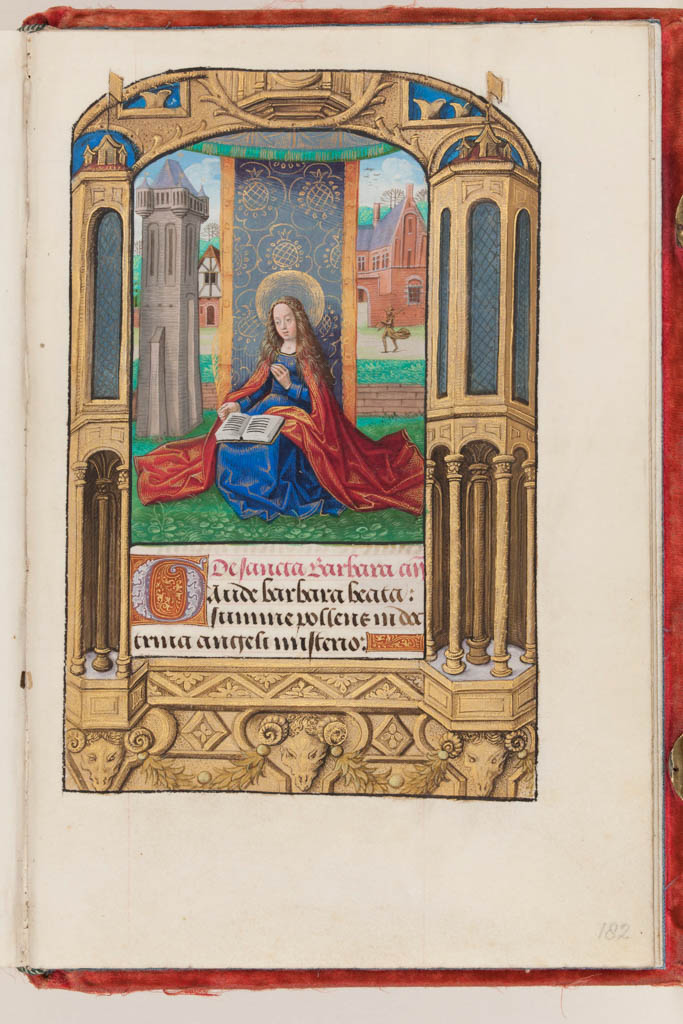 De sancta Barbara añ
Gaude barbara beata:
summe pollens in doc
trina angeli misterio:
182